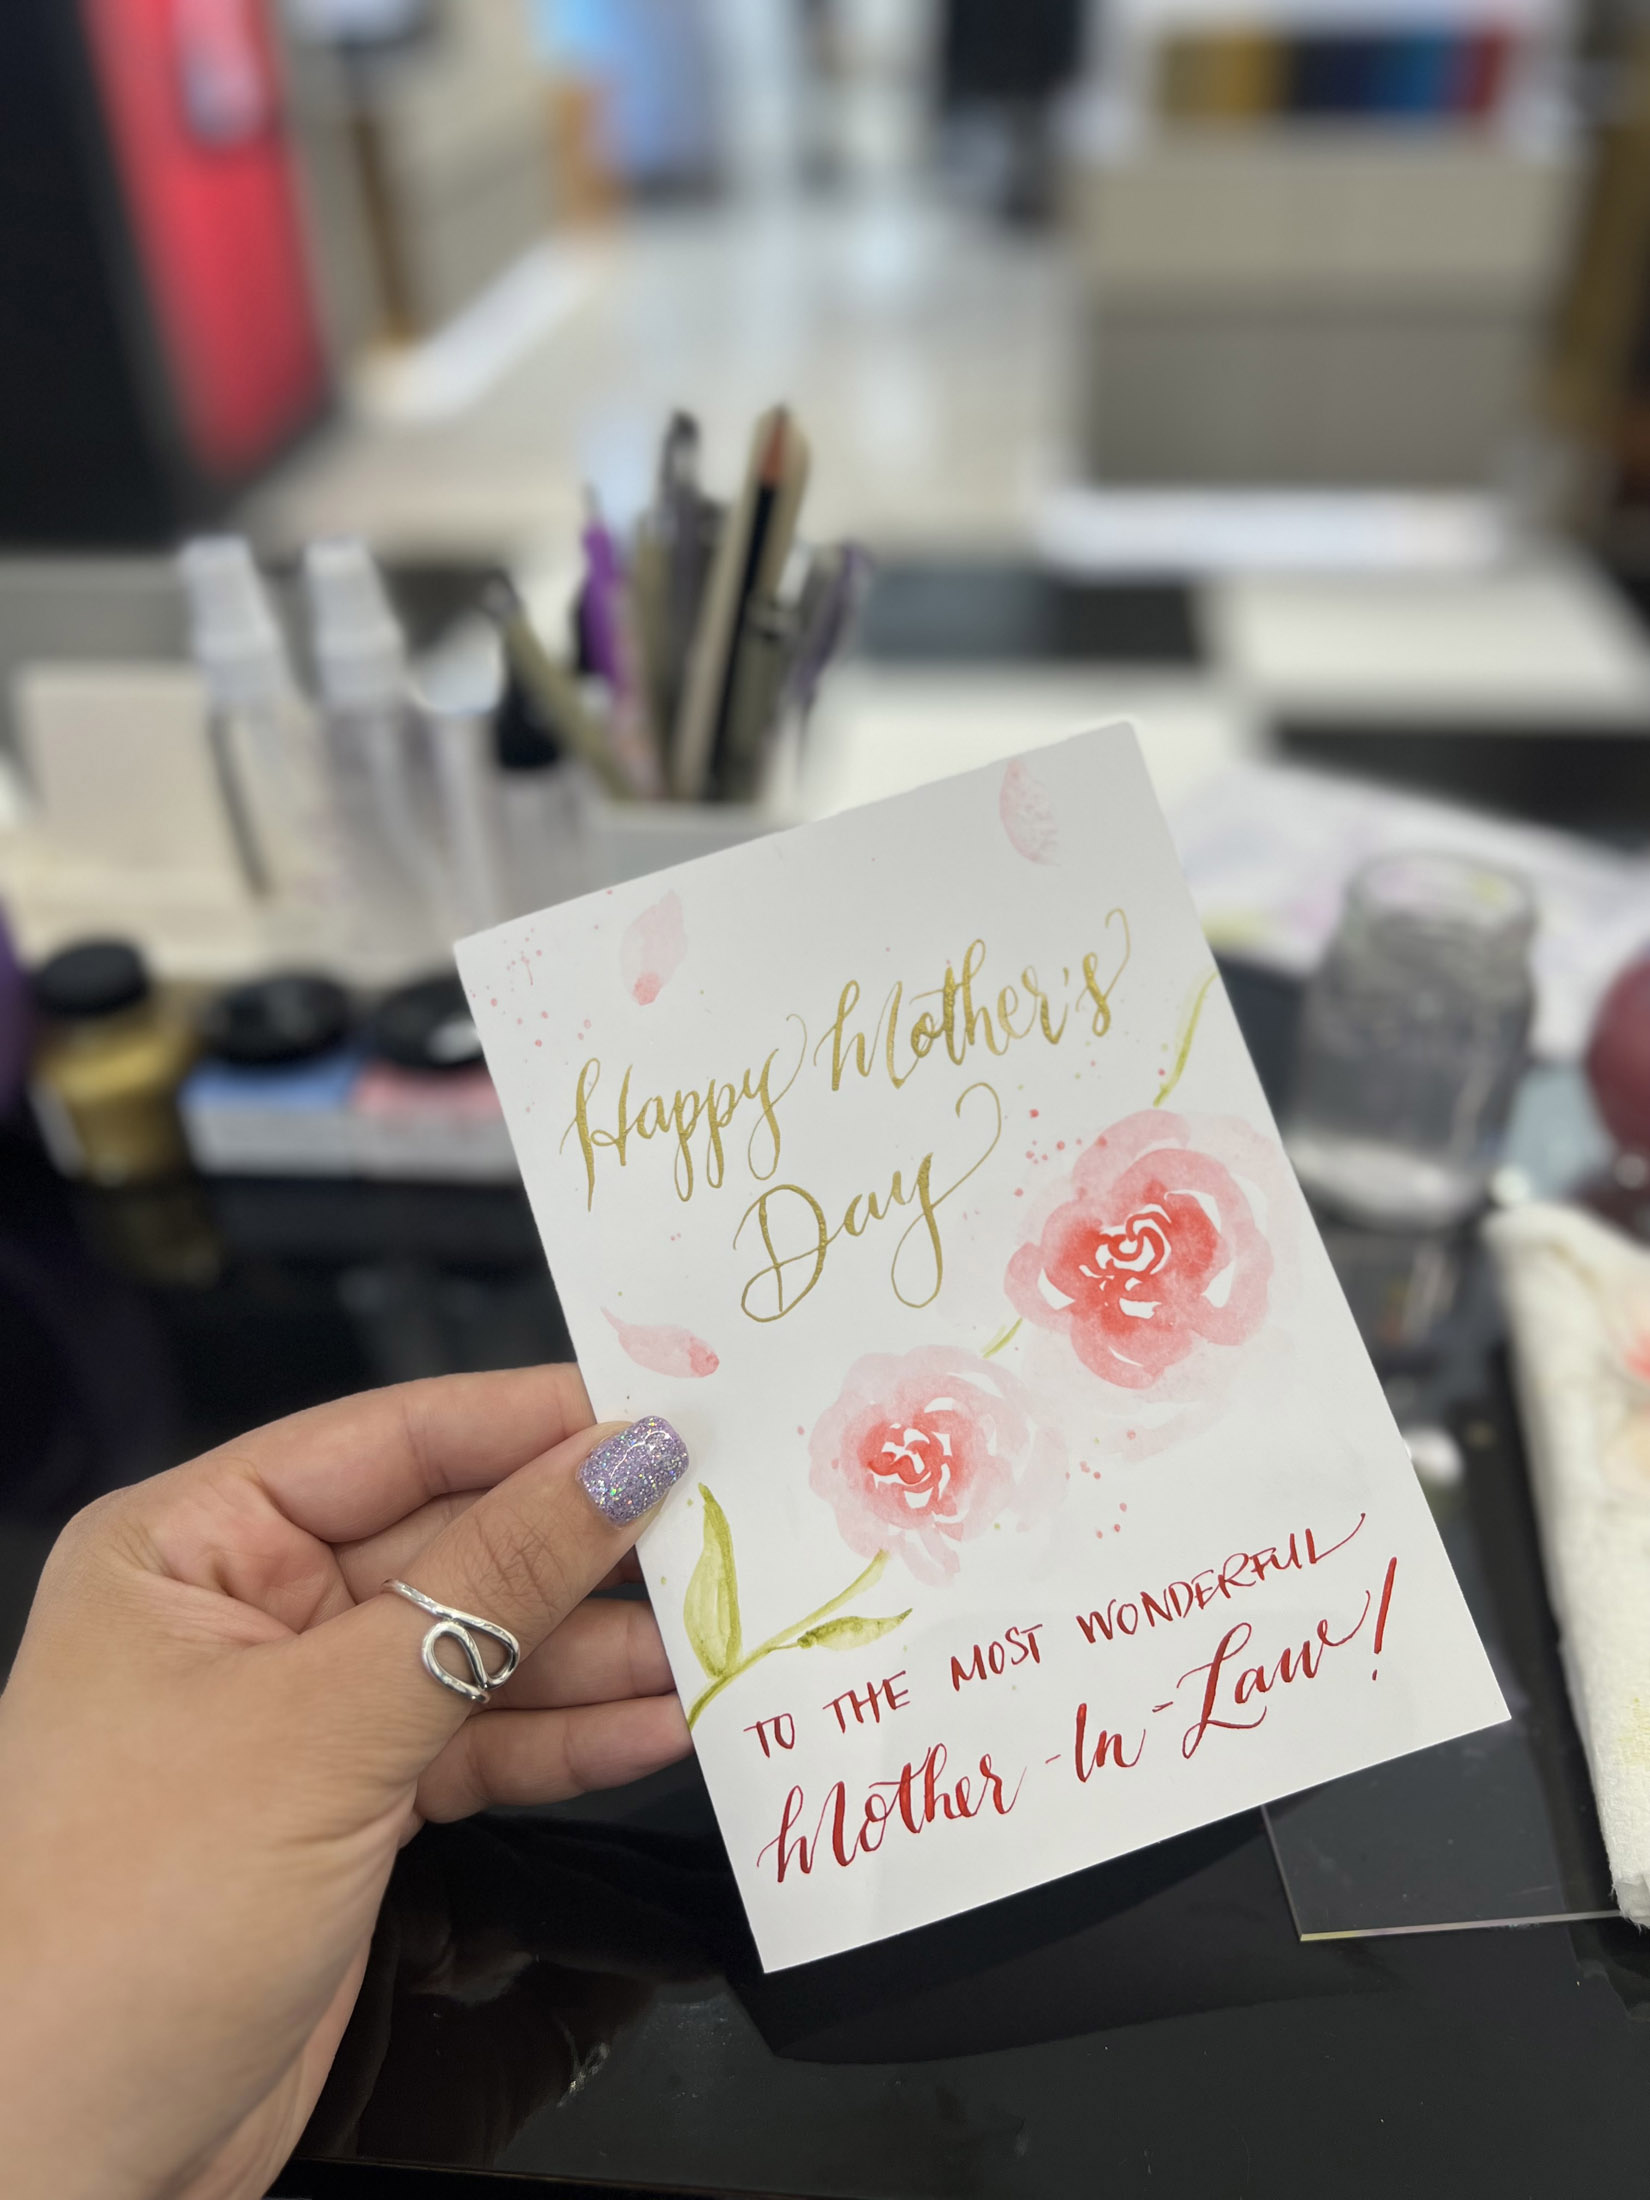 Happy Mother's
Day
TO THE MOST WONDERFUL
Mother-In-Law!